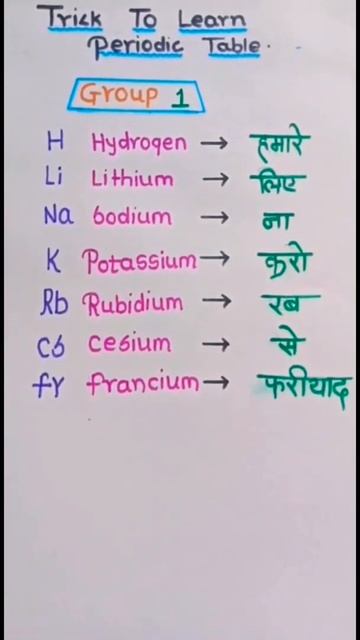 Trick To Learn
Periodic Table.
Group 1
H Hydrogen → हमारे
Li Lithium → लिए
Na Sodium → ना
K Potassium → करो
Rb Rubidium → रब
Cs Cesium → से
fr francium → फरीयाद